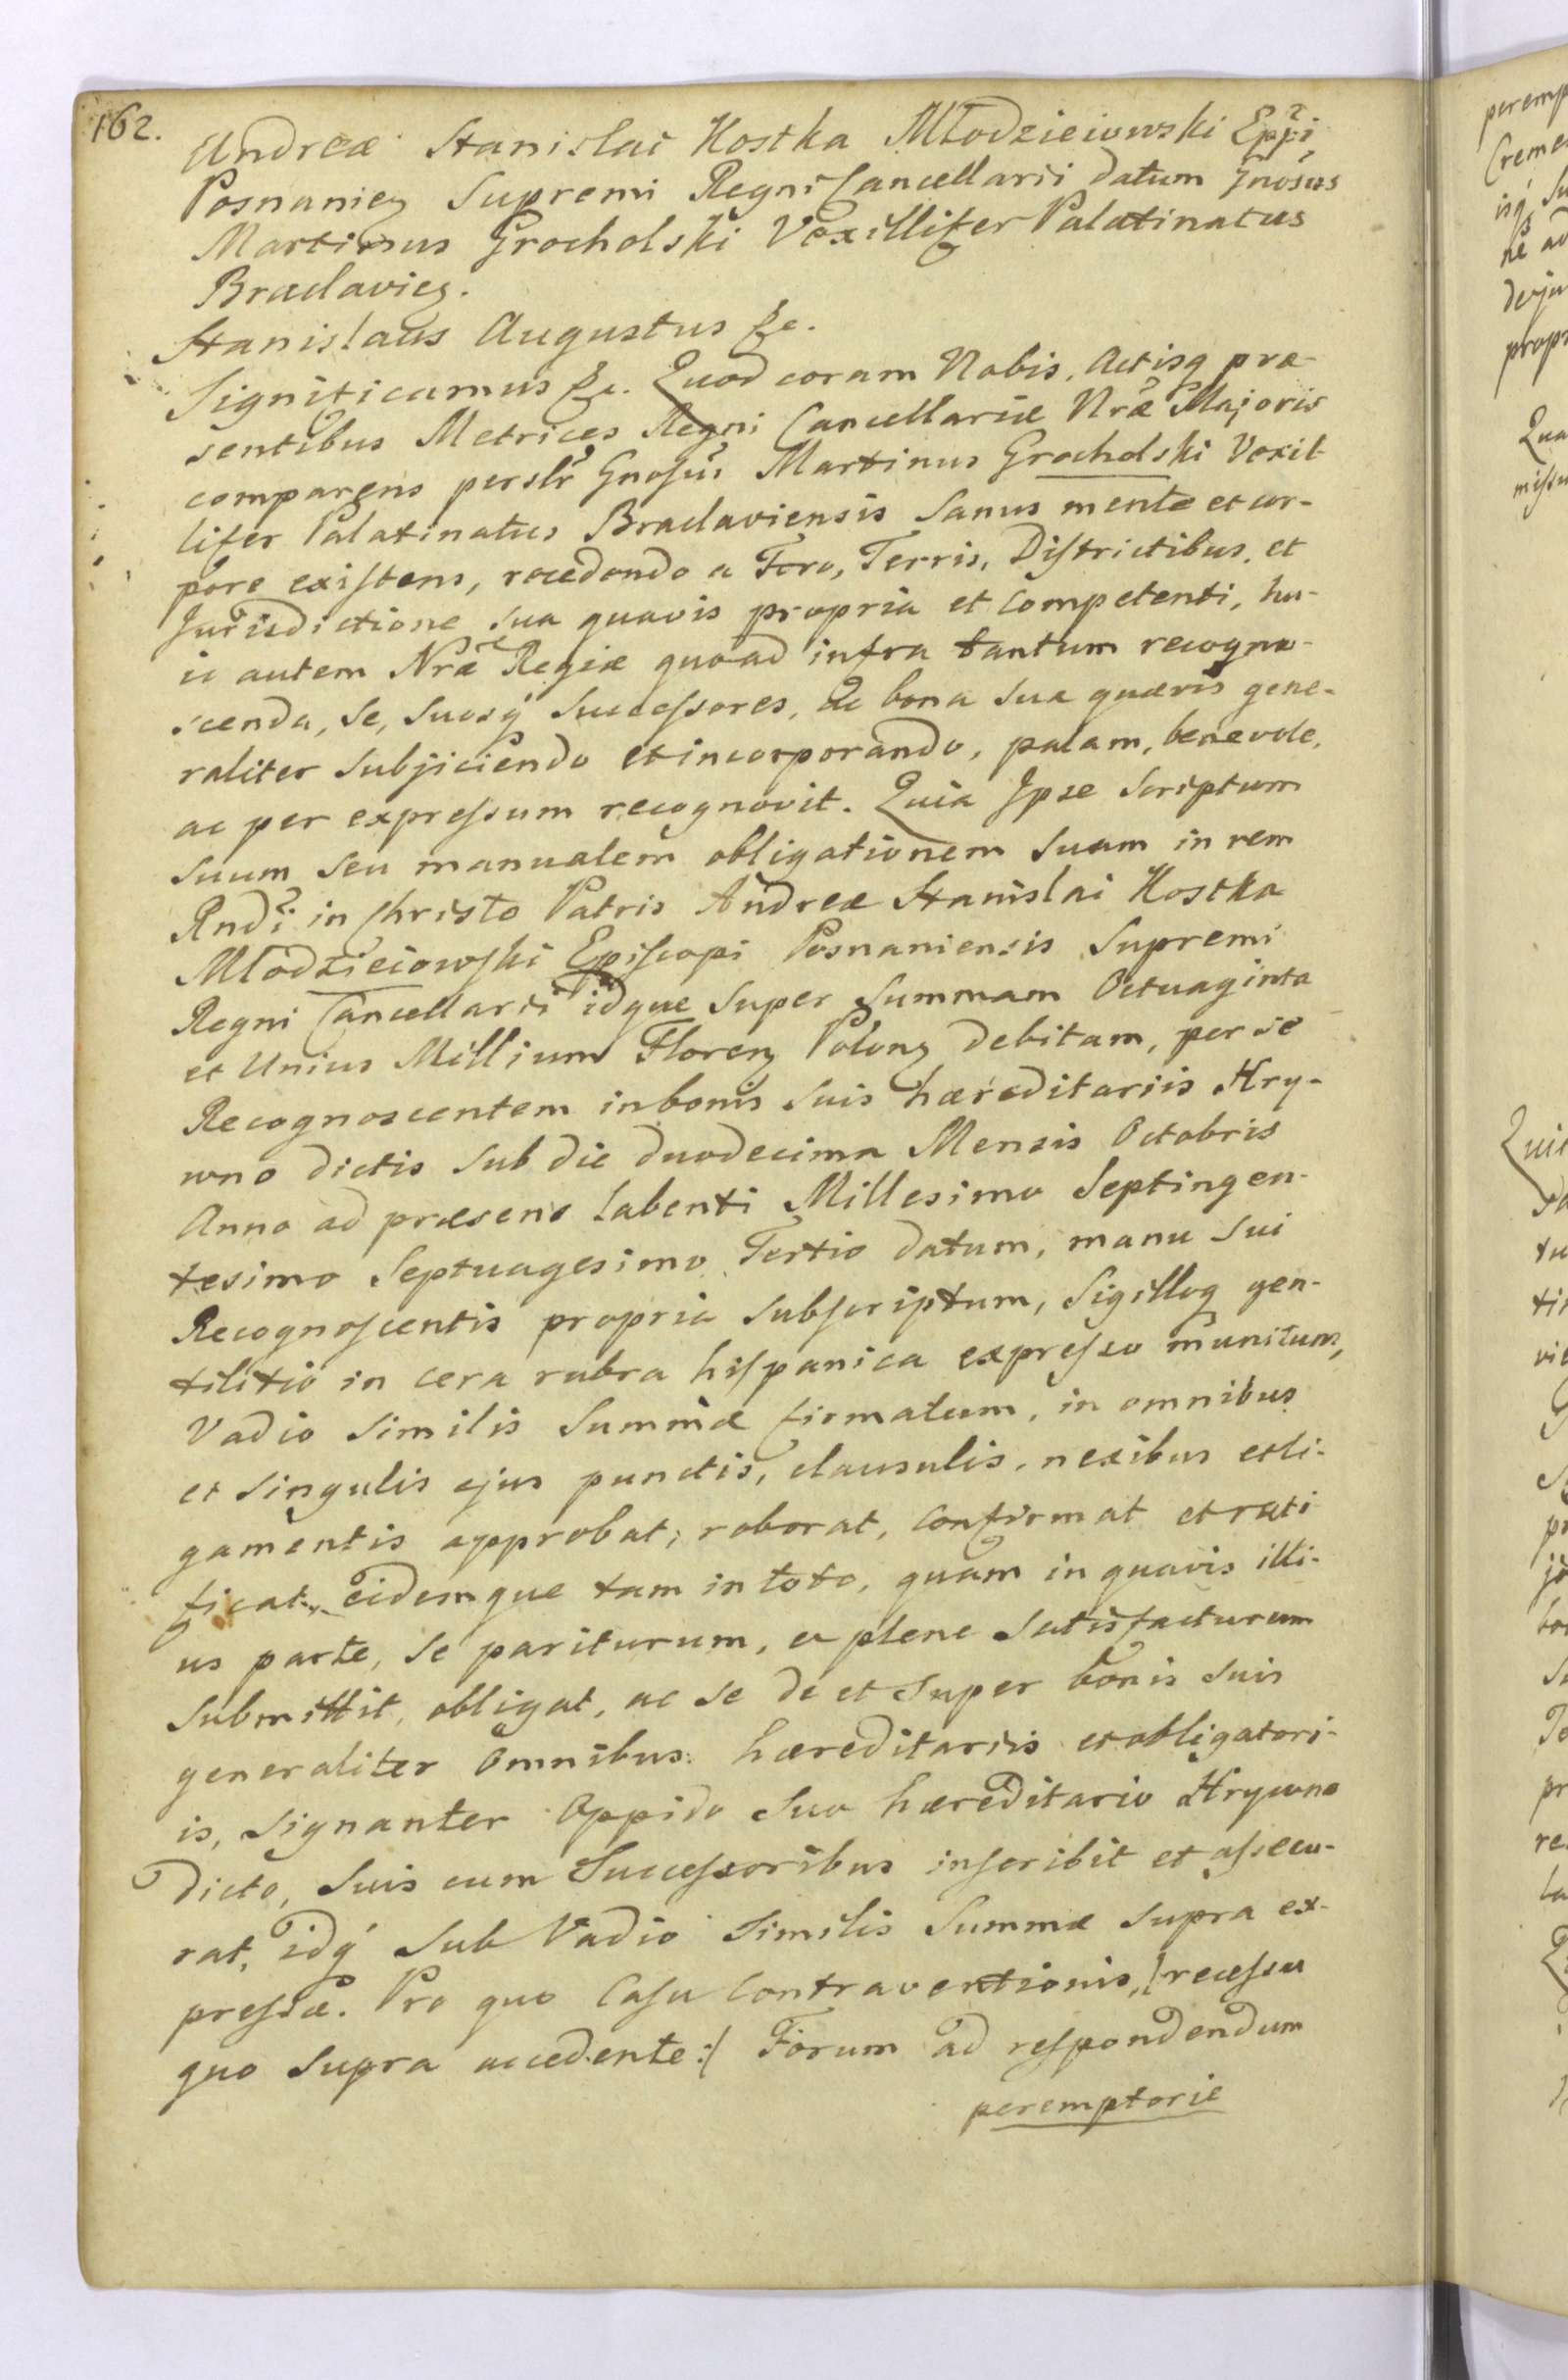 162.
Andreæ Stanislai Kostka Młodzieiowski Eppi
Posnanien Supremi Regni Cancellarii datum Gnosus
Martinus Grocholski Vexillifer Palatinatus
Braclavien.
Stanislaus Augustus &c.
Significamus &c. Quod coram Nobis, Actisq præ-
sentibus Metrices Regni Cancellariæ Nræ Majoris
comparens perslr Gnosus Martinus Grocholski Vexil-
lifer Palatinatus Braclaviensis Sanus mente et cor-
pore existens, recedendo a Foro, Terris, Districtibus, et
Jurisdictione sua quavis propria et Competenti, hu-
ic autem Nræ Regiæ quoad infra tantum recogno-
scenda, Se, Suosq Successores, ac bona sua quævis gene-
raliter Subjiciendo et incorporando, palam, benevole,
ac per expressum recognovit. Quia Ipse Scriptum
Suum seu manualem obligationem Suam in rem
Rndi in Christo Patris Andreæ Stanislai Kostka
Młodzieiowski Episcopi Posnaniensis Supremi
Regni Cancellarii idque Super Summam Octuaginta
et Unius Millium Floren Polon debitam, per se
Recognoscentem in bonis Suis hæreditariis Hry-
wno dictis Sub die duodecima Mensis Octobris
Anno ad præsens labenti Millesimo Septingen-
tesimo Septuagesimo Tertio datum, manu Sui
Recognoscentis propria Subscriptum, Sigilloq gen-
tilitio in cera rubra hispanica expresso munitum,
Vadio Similis Summæ firmatum, in omnibus
et Singulis ejus punctis, clausulis, nexibus et li-
gamentis approbat, roborat, Confirmat et rati
ficat, eidemque tam in toto, quam in quavis illi-
us parte, Se pariturum, ac plene Satisfacturum
Submittit, obligat, ac Se de et Super bonis Suis
generaliter Omnibus hæreditariis et obligatori-
is, Signanter Oppido Suo hæreditario Hrywno
Dicto, Suis cum Successoribus inscribit et assecu-
rat, idq Sub Vadio Similis Summæ Supra ex-
pressæ. Pro quo Casu Contraventionis, /recessu
quo Supra accedente:/ Forum ad respondendum
peremptorie